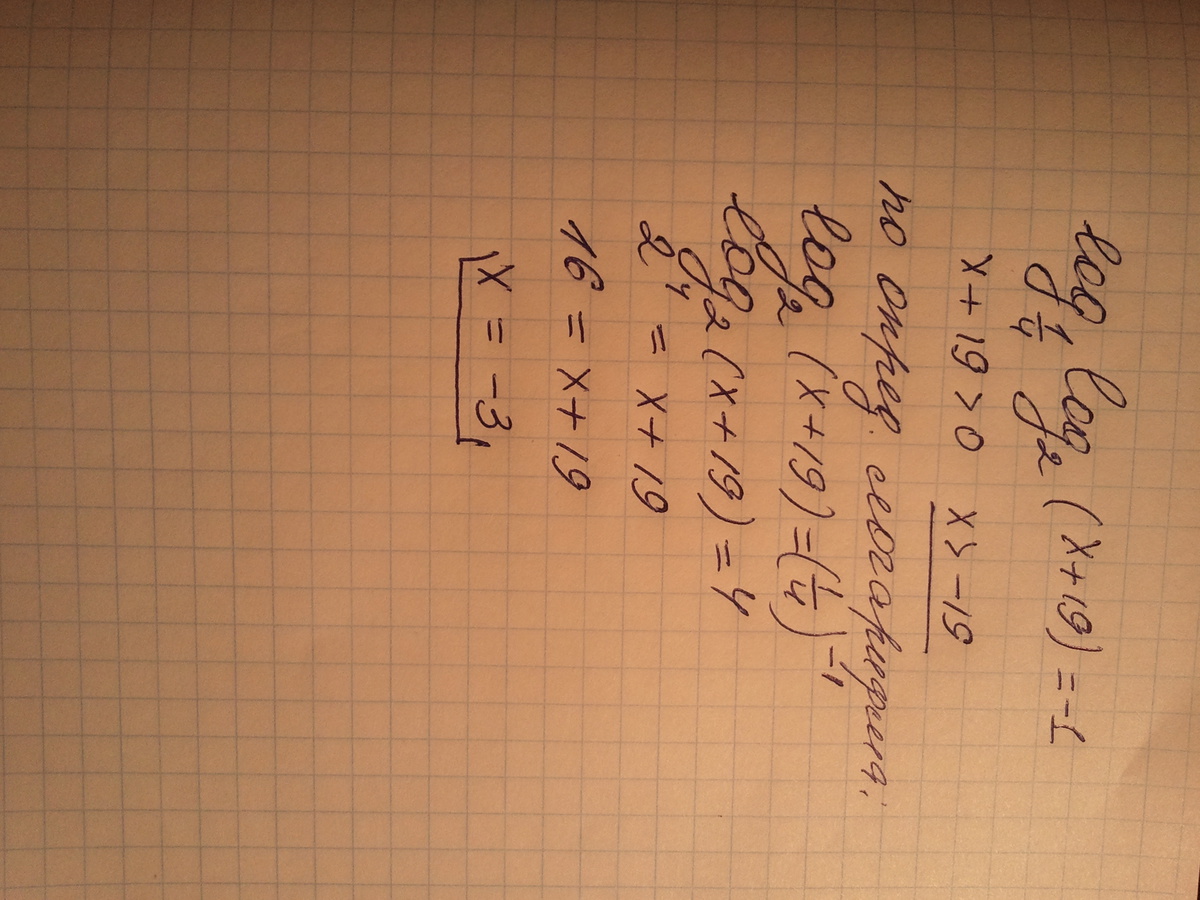 log_{1/4} log_2 (x+19) = -1
x + 19 > 0   x > -19
по опред. логарифма;
log_2 (x+19) = (1/4)^{-1}
log_2 (x+19) = 4
2^4 = x + 19
16 = x + 19
x = -3